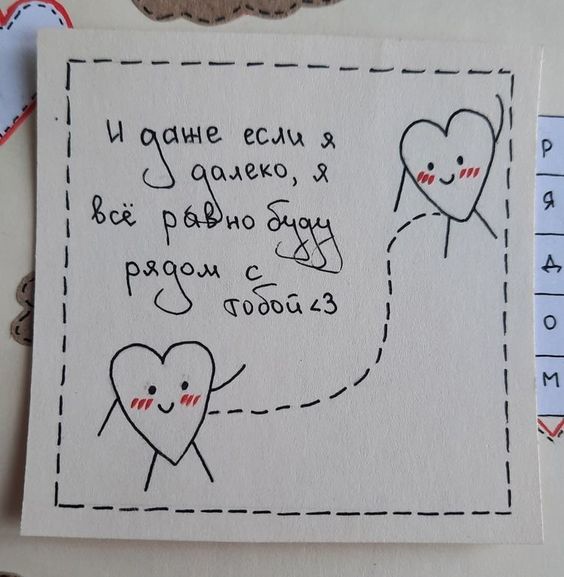 И даже если я
далеко, я
всё равно буду
рядом с
тобой <3
Р
Я
Д
О
М